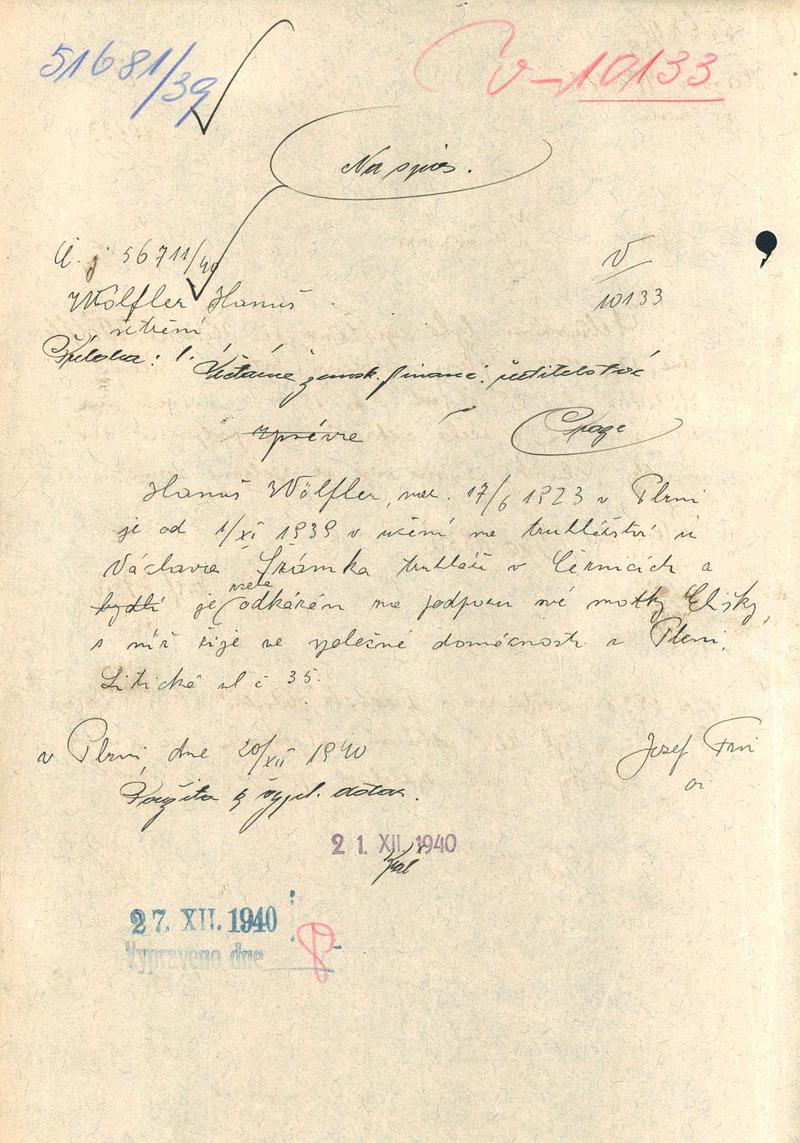 51681/39
V-10133
Na spis.
Č. j. 56711/40
V
10133
Wölfler Hanuš
šetření
Příloha: 1.
Účtárně zemsk. finanč. ředitelství
v Praze
zpráva
Hanuš Wölfler, nar. 17/6 1923 v Plzni
je od 1/XI 1939 v učení na truhlářství u
Václava Šrámka truhláře v Černicích a
bydlí je zcela odkázán na podporu své matky Elišky,
s níž žije ve společné domácnosti v Plzni,
Litická ul č 35.
v Plzni, dne 20/XII 1940
Josef
oi
21. XII. 1940
27. XII. 1940
Vypraveno dne